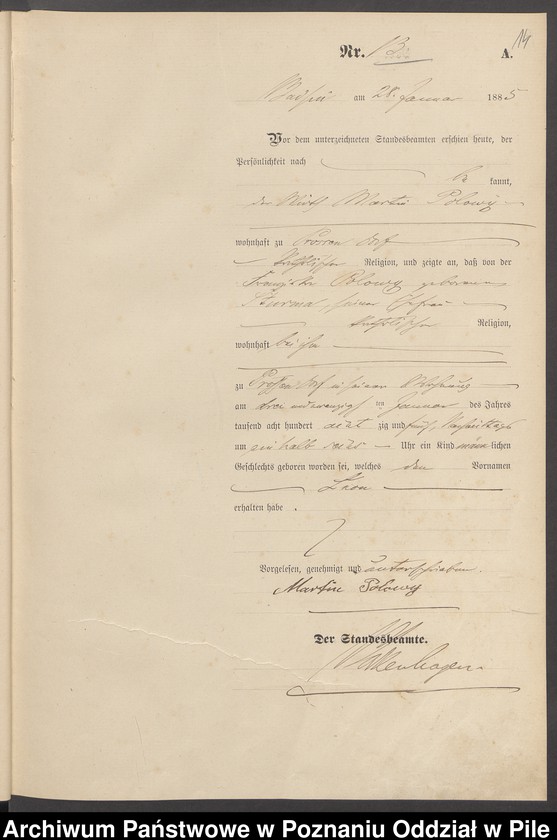 14
Nr. 13. A.
am 28. Januar 1885
Vor dem unterzeichneten Standesbeamten erschien heute, der
Persönlichkeit nach
be kannt,
der Wirth Martin Polowy
wohnhaft zu dorf
katholischer Religion, und zeigte an, daß von der
Polowy geborenen
seiner Ehefrau
katholischer Religion,
wohnhaft bei ihm
zu dorf in seiner Wohnung
am drei und zwanzigsten Januar des Jahres
tausend acht hundert acht zig und fünf, Nachmittags
um halb sechs Uhr ein Kind männ lichen
Geschlechts geboren worden sei, welches den Vornamen
Leon
erhalten habe.
Vorgelesen, genehmigt und unterschrieben.
Martin Polowy
Der Standesbeamte.
Archiwum Państwowe w Poznaniu Oddział w Pile